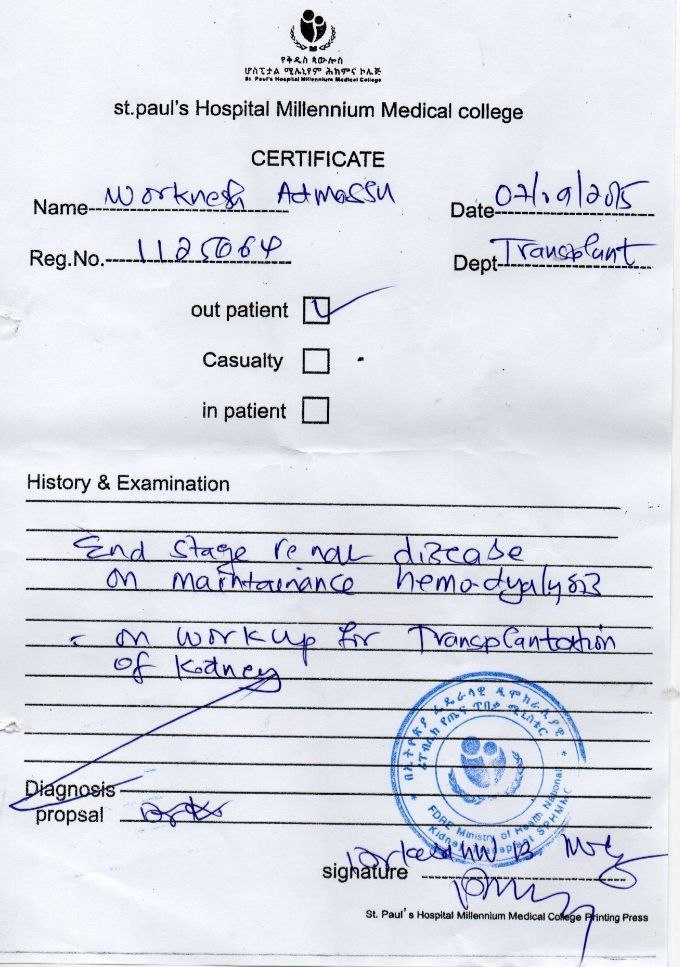 የቅዱስ ጳውሎስ
ሆስፒታል ሚሊኒየም ሕክምና ኮሌጅ
St. Paul's Hospital Millennium Medical College
st.paul's Hospital Millennium Medical college
CERTIFICATE
Name Worknesh Admassu
Date 02/09/2015
Reg.No. 1125064
Dept Transplant
out patient
Casualty
in patient
History & Examination
End stage renal disease
on maintainance hemodyalysis
- on workup for Transplantation
of Kidney
Diagnosis
propsal
በኢትዮጵያ ፌዴራላዊ ዲሞክራሲያዊ
ሪፐብሊክ የጤና ጥበቃ ሚኒስቴር
FDRE Ministry of Health National
Kidney Transplant SPHMMC
signature
St. Paul's Hospital Millennium Medical College Printing Press